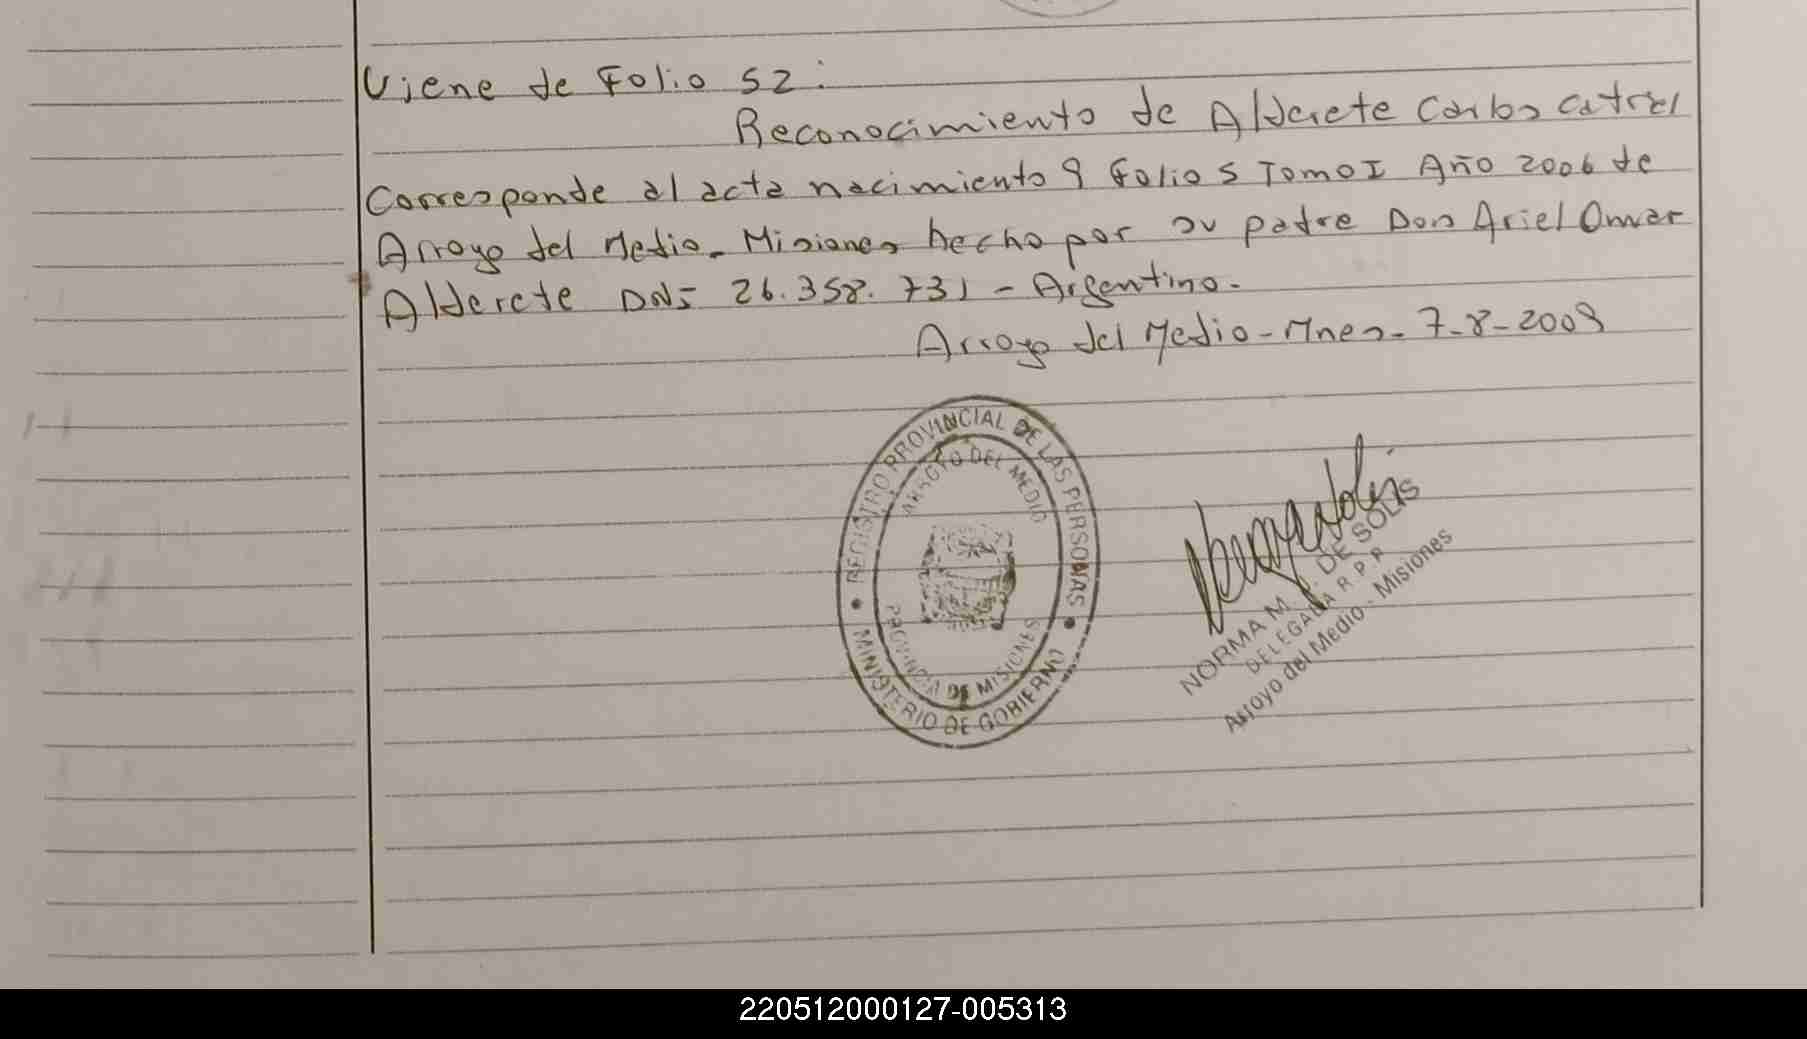 Viene de Folio 52:
Reconocimiento de Alderete Carlos Catriel
Corresponde al acta nacimiento 9 Folio 5 Tomo I Año 2006 de
Arroyo del Medio - Misiones hecho por su padre Don Ariel Omar
Alderete DNI 26.358.731 - Argentino.
Arroyo del Medio - Mnes - 7-8-2009
REGISTRO PROVINCIAL DE LAS PERSONAS
ARROYO DEL MEDIO
PROVINCIA DE MISIONES
MINISTERIO DE GOBIERNO
NORMA M. DE SOLIS
DELEGADA R P P
Arroyo del Medio - Misiones
220512000127-005313